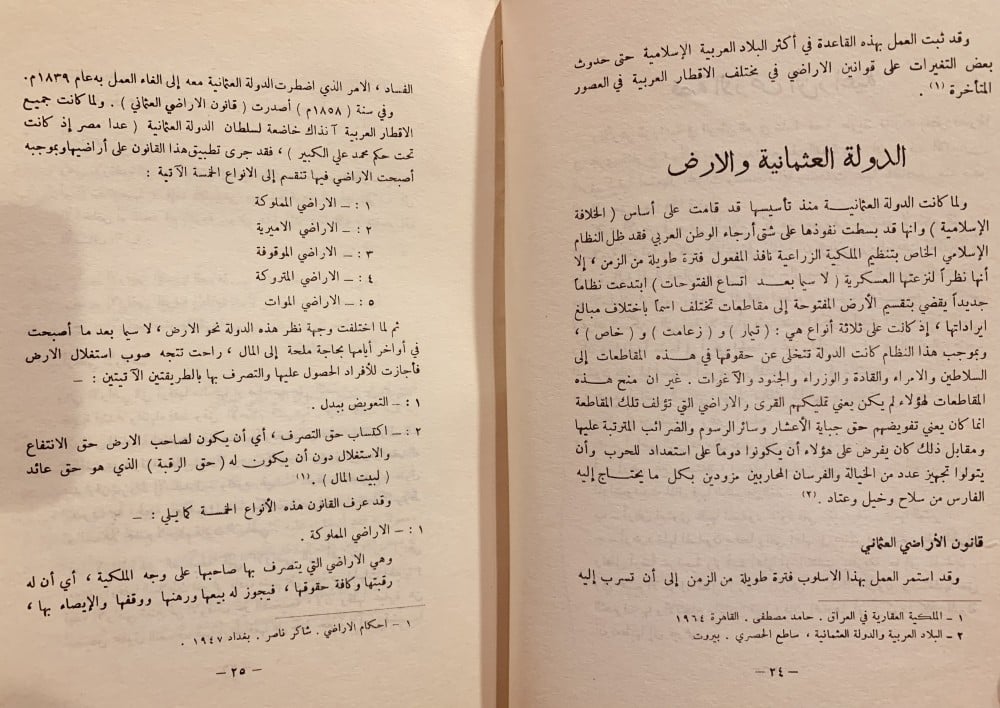 وقد ثبت العمل بهذه القاعدة في أكثر البلاد العربية الإسلامية حتى حدوث
بعض التغيرات على قوانين الاراضي في مختلف الاقطار العربية في العصور
المتأخرة (١) .
الدولة العثمانية والارض
ولما كانت الدولة العثمانيـة منذ تأسيسها قد قامت على أساس ( الخلافة
الإسلامية ) وانها قد بسطت نفوذها على شتى أرجاء الوطن العربي فقد ظل النظام
الإسلامي الخاص بتنظيم الملكية الزراعية نافذ المفعول فترة طويلة من الزمن ، إلا
أنها نظراً لنزعتها العسكرية ( لا سيما بعـد اتساع الفتوحات ) ابتدعت نظاماً
جديداً يقضي بتقسيم الأرض المفتوحة إلى مقاطعات تختلف اسماً بإختلاف مبالغ
ايراداتها ، إذ كانت على ثلاثة أنواع هي : ( تيمار ) و ( زعامت ) و ( خاص ) ،
وبموجب هذا النظام كانت الدولة تتخلى عن حقوقها في هـذه المقاطعات إلى
السلاطين والامراء والقادة والوزراء والجنود والآغوات . غير ان منح هـذه
المقاطعات لهؤلاء لم يكن يعني تمليكهم القرى والاراضي التي تؤلف تلك المقاطعة
انما كان يعني تفويضهم حق جباية الأعشار وسائر الرسوم والضرائب المترتبة عليها
ومقابل ذلك كان يفرض على هؤلاء أن يكونوا دوماً على استعداد للحرب وأن
يتولوا تجهيز عدد من الخيالة والفرسان المحاربين مزودين بكل ما يحتـاج إليه
الفارس من سلاح وخيل وعتاد . (٢)
قانون الأراضي العثماني
وقد استمر العمل بهذا الاسلوب فترة طويلة من الزمن إلى أن تسرب إليه
١ ـ الملكية العقارية في العراق . حامد مصطفى . القاهرة ١٩٦٤
٢ ـ البلاد العربية والدولة العثمانية ، ساطع الحصري . بيروت
ـ ٢٤ ـ
الفساد ، الامر الذي اضطرت الدولة العثمانية معه إلى الغاء العمل به عام ١٨٣٩م.
وفي سنة ( ١٨٥٨م ) أصدرت ( قانون الاراضي العثماني ) . ولما كانت جميع
الاقطار العربية آنذاك خاضعة لسلطان الدولة العثمانية ( عدا مصر إذ كانت
تحت حكم محمد علي الكبير ) ، فقد جرى تطبيق هذا القانون على أراضيها وبموجبه
أصبحت الاراضي فيها تنقسم إلى الانواع الخمسة الآتية :
١ : ـ الاراضي المملوكة
٢ : ـ الاراضي الاميرية
٣ : ـ الاراضي الموقوفة
٤ : ـ الاراضي المتروكة
٥ : ـ الاراضي الموات
ثم لما اختلفت وجهة نظر هذه الدولة نحو الارض ، لا سيما بعد ما أصبحت
في أواخر أيامها بحاجة ملحة إلى المال ، راحت تتجه صوب استغلال الارض
فأجازت للأفراد الحصول عليها والتصرف بها بالطريقتين الآتيتين : ـ
١ : ـ التعويض ببدل .
٢ : ـ اكتساب حق التصرف ، أي أن يكون لصاحب الارض حق الانتفاع
والاستغلال دون أن يكون له ( حق الرقبة ) الذي هو حق عائد
( لبيت المال ) . (١)
وقد عرف القانون هذه الأنواع الخمسة كما يلي : ـ
١ : ـ الاراضي المملوكة .
وهي الاراضي التي يتصرف بها صاحبها على وجه الملكية ، أي أن له
رقبتها وكافة حقوقها ، فيجوز له بيعها ورهنها ووقفها والإيصاء بها ،
١ ـ احكام الاراضي . شاكر ناصر . بغداد ١٩٤٧ .
ـ ٢٥ ـ